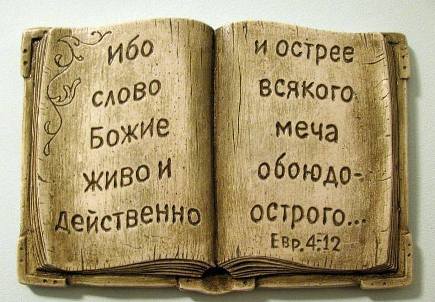 ибо
слово
Божие
живо и
действенно
и острее
всякого
меча
обоюдо-
острого...
Евр. 4:12